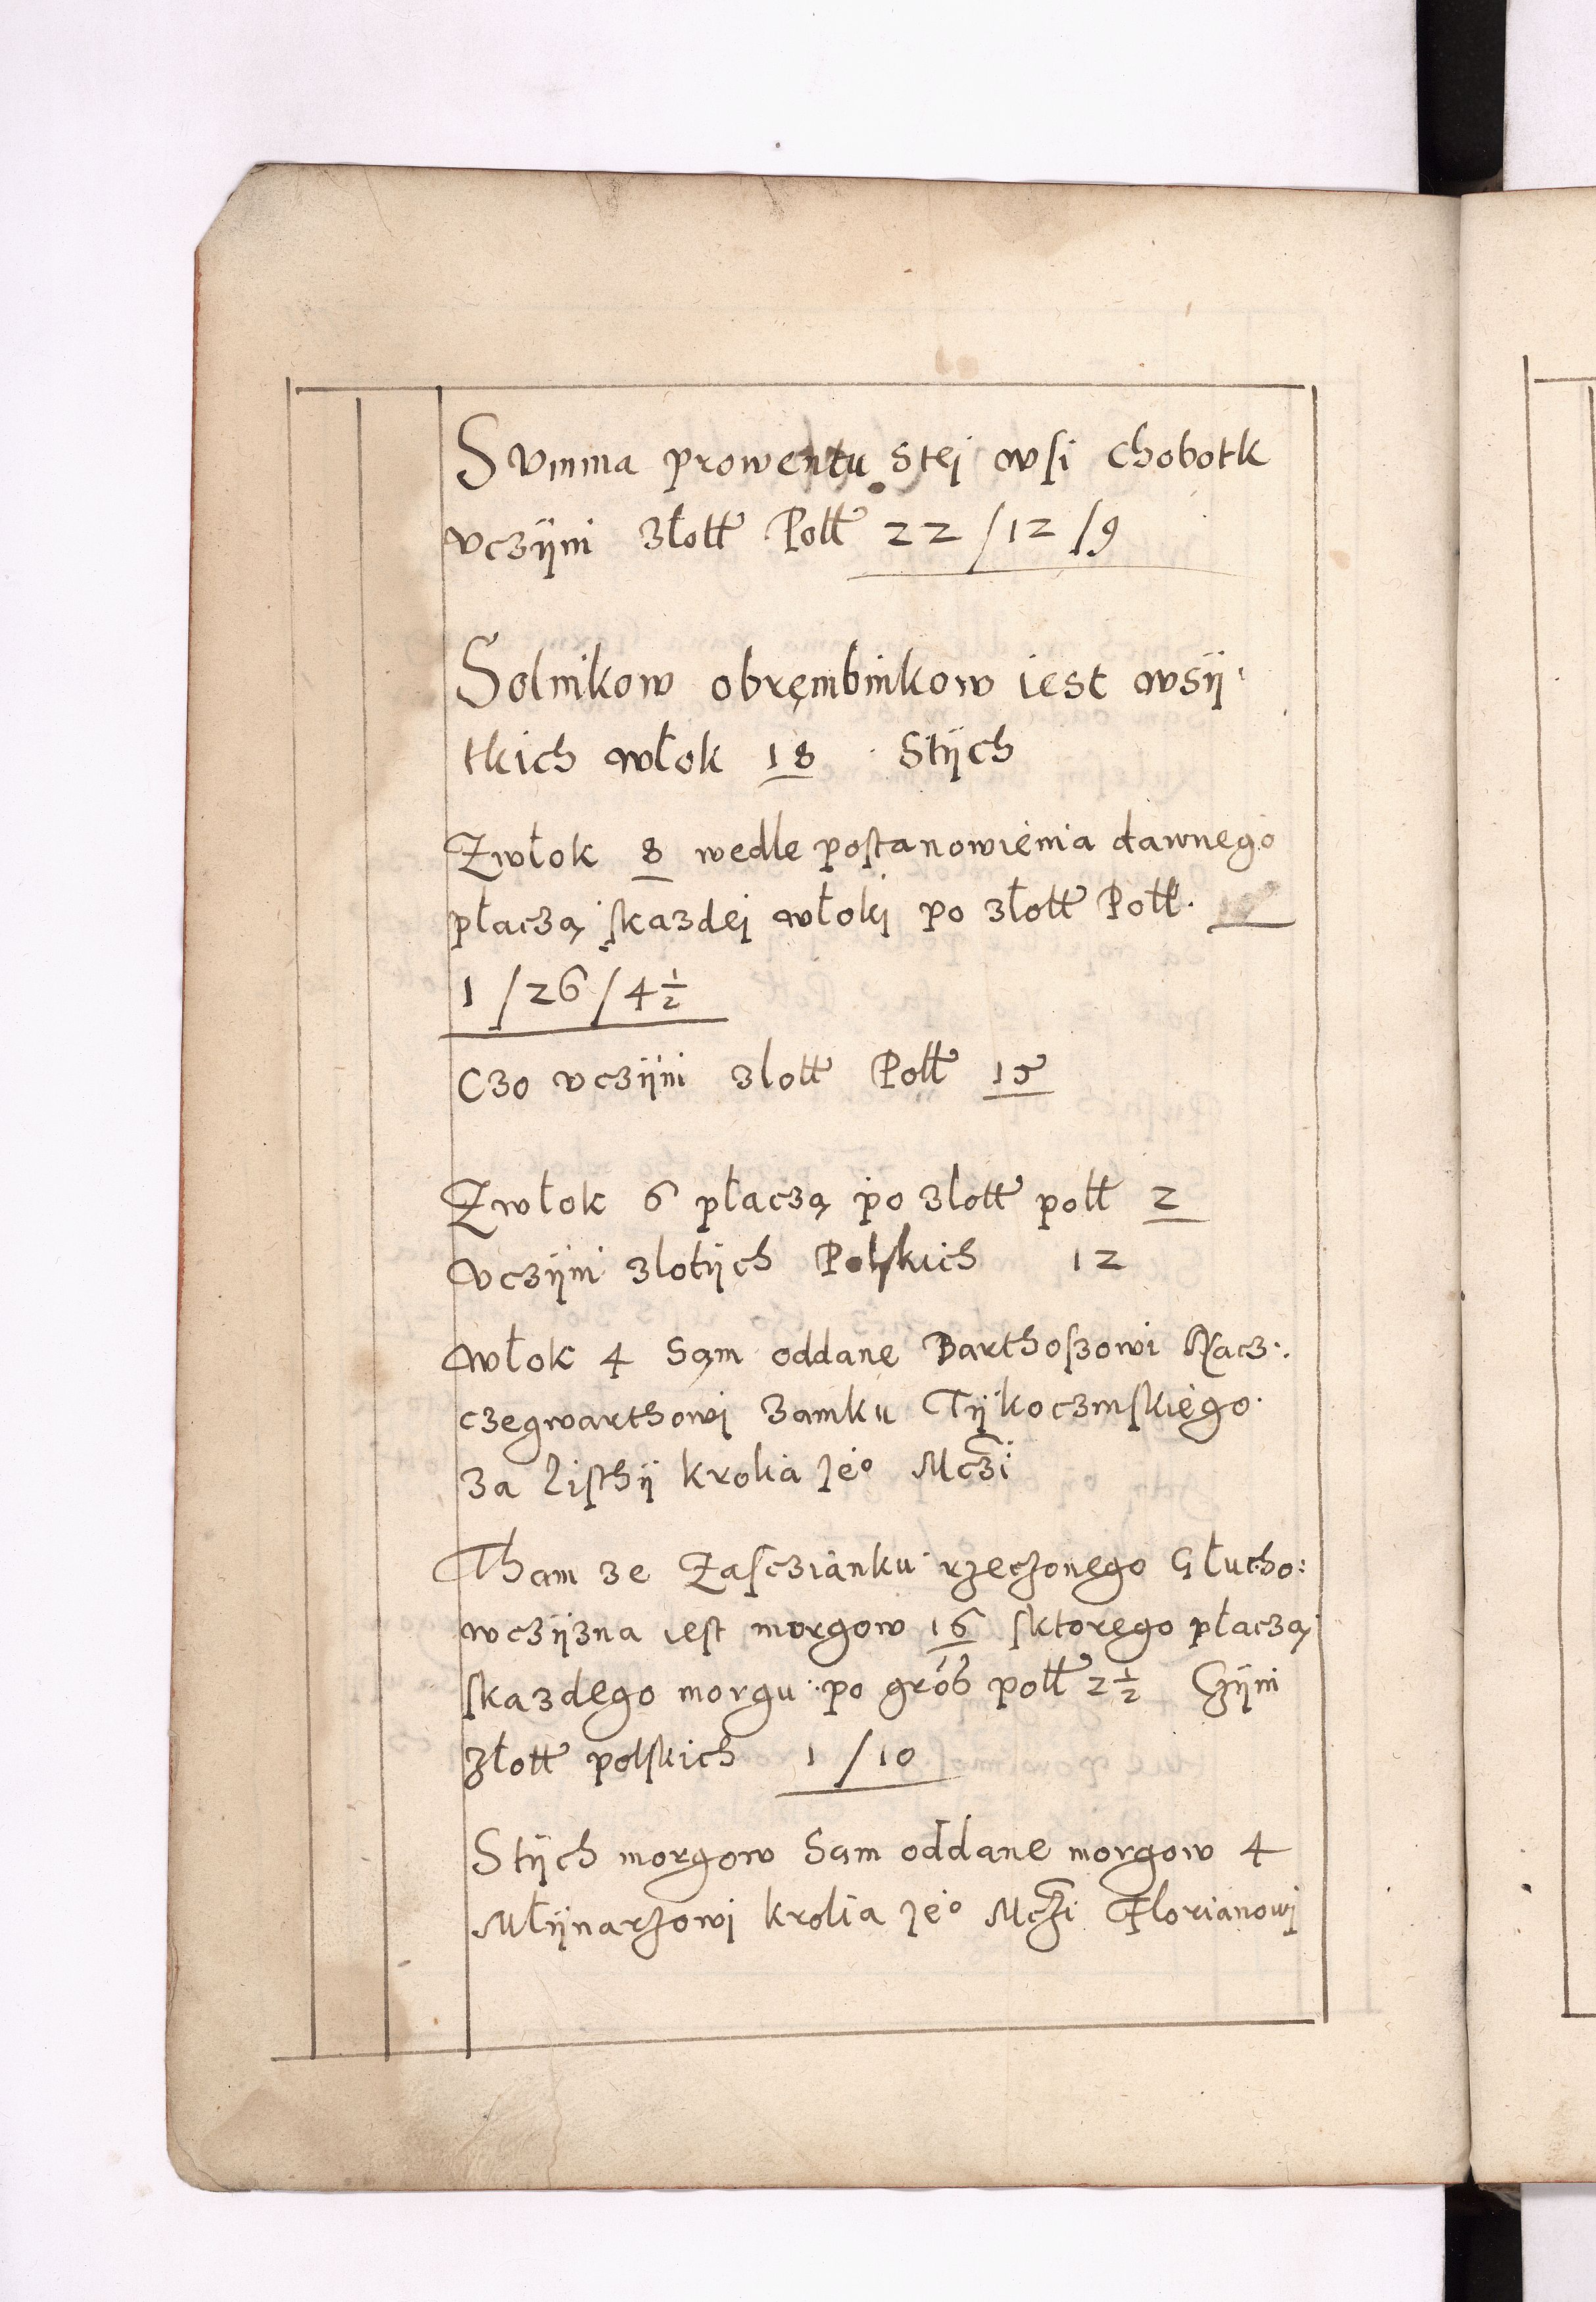 Summa prowentu stej wsi Chobotk
uczÿni złott Poll 22/12/9
Solnikow obręmbnikow iest wsÿ
tkich włok 18 Stÿch
Zwłok 8 wedle postanowienia dawnego
płaczą skazdej włokj po złott Poll.
1/26/4½
Czo uczÿni zlott Poll 15
Zwłok 6 płaczą po zlott poll 2
uczÿni zlotÿch Polskich 12
włok 4 Sąm oddane Barthoszowi Racz:
czegwarthowj zamku Tÿkoczinskiego
za listhÿ krolia Jeº Mczi
Tham ze Zasczianku rzeczonego Głucho:
wczÿzna iest morgow 16 sktorego płaczą
skazdego morgu po groß poll 2½ Czÿni
złott polskich 1/10
Stÿch morgow Sam oddane morgow 4
Młÿnarzowi krolia Jeº Mczi Florianowj